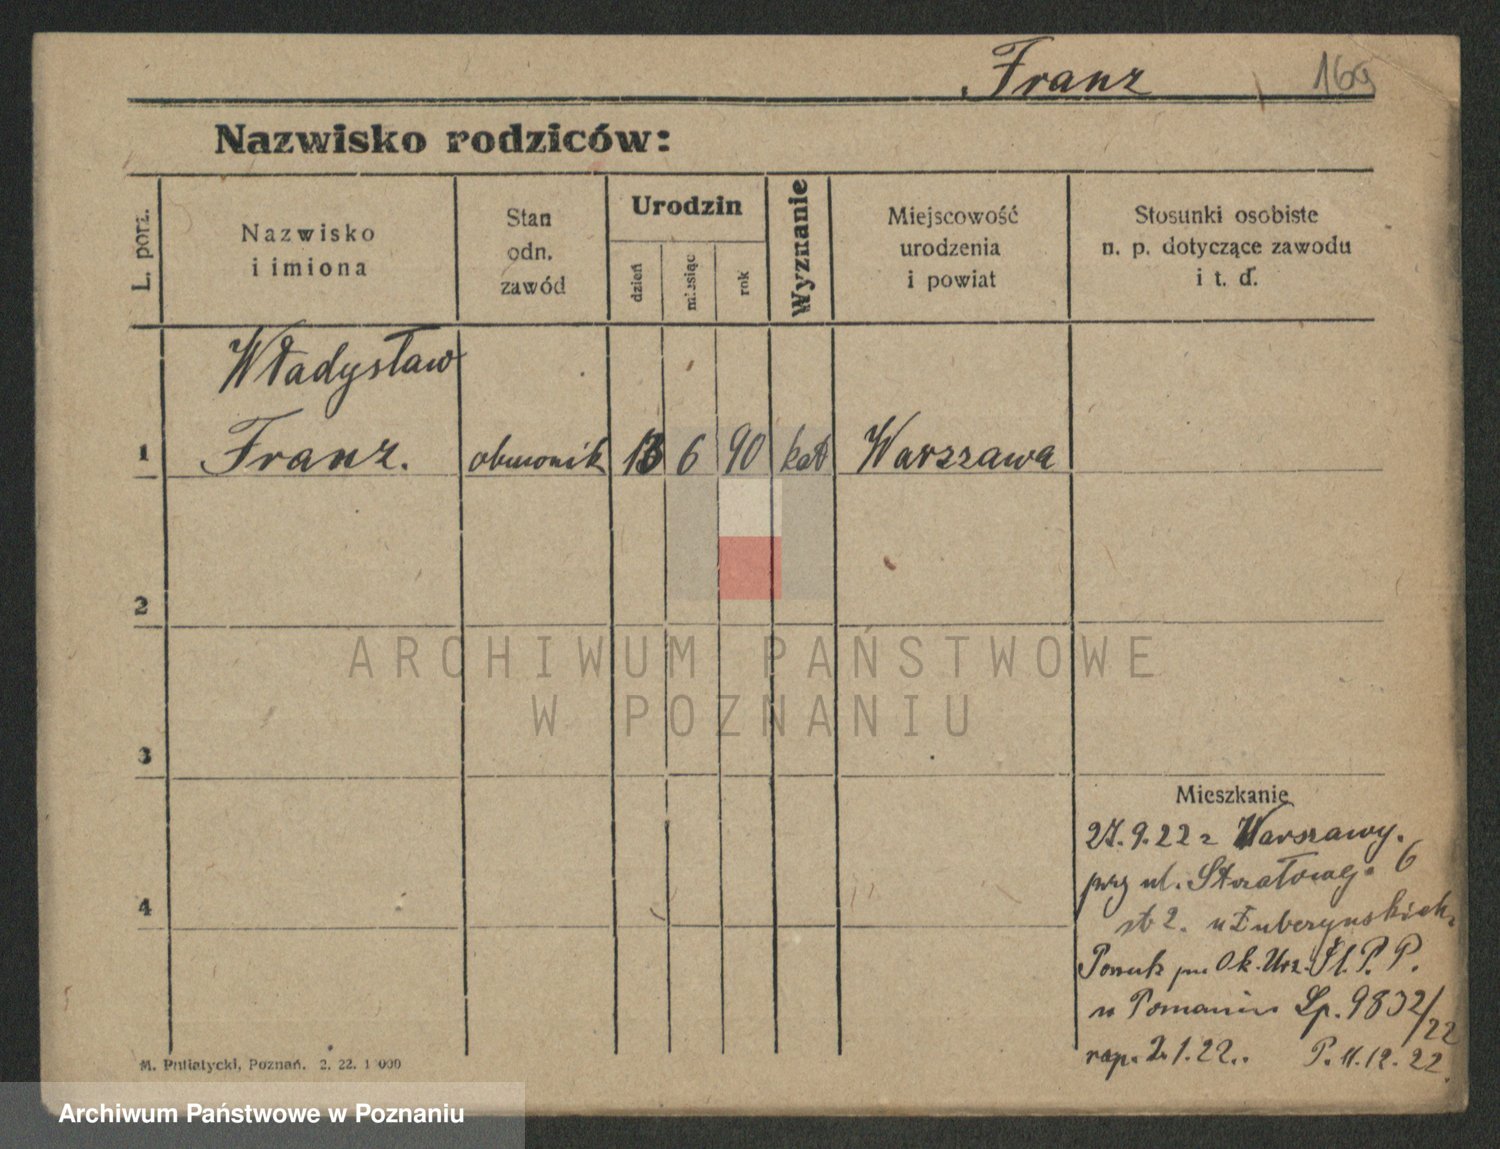 Franz 169
Nazwisko rodziców:
L. porz.
Nazwisko
i imiona
Stan
odn.
zawód
Urodzin
dzień
miesiąc
rok
Wyznanie
Miejscowość
urodzenia
i powiat
Stosunki osobiste
n. p. dotyczące zawodu
i t. d.
Władysław
1 Franz. 13 6 90 kat Warszawa
2
3
4
Mieszkanie
27.9.22 z Warszawy.
przy ul. Strzałowej. 6
Ok. Urz. P. P.
w Poznaniu Lp. 9832/22
rap. 2.1.22. P. 11.12.22.
M. Putiatycki, Poznań. 2. 22. 1 000
ARCHIWUM PAŃSTWOWE
W POZNANIU
Archiwum Państwowe w Poznaniu